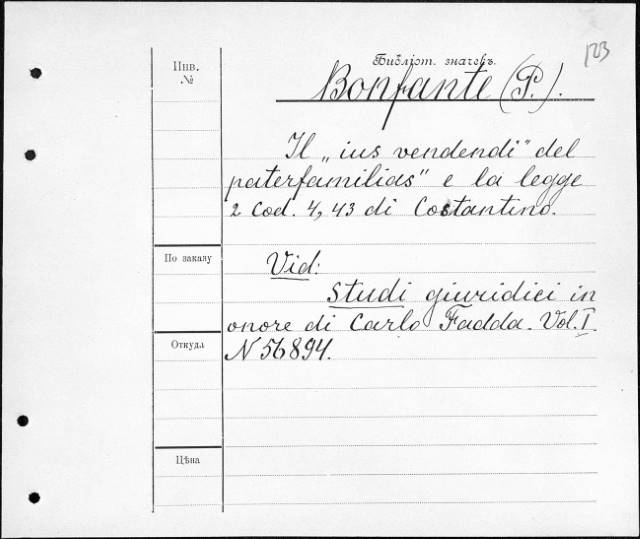 Библіот. значекъ.
123
Инв.
№
Bonfante (P.).
Il „ius vendendi" del
paterfamilias" e la legge
2 Cod. 4, 43 di Costantino.
По заказу
Vid:
Studi giuridici in
onore di Carlo Fadda. Vol. I.
Откуда
N 56894.
Цѣна